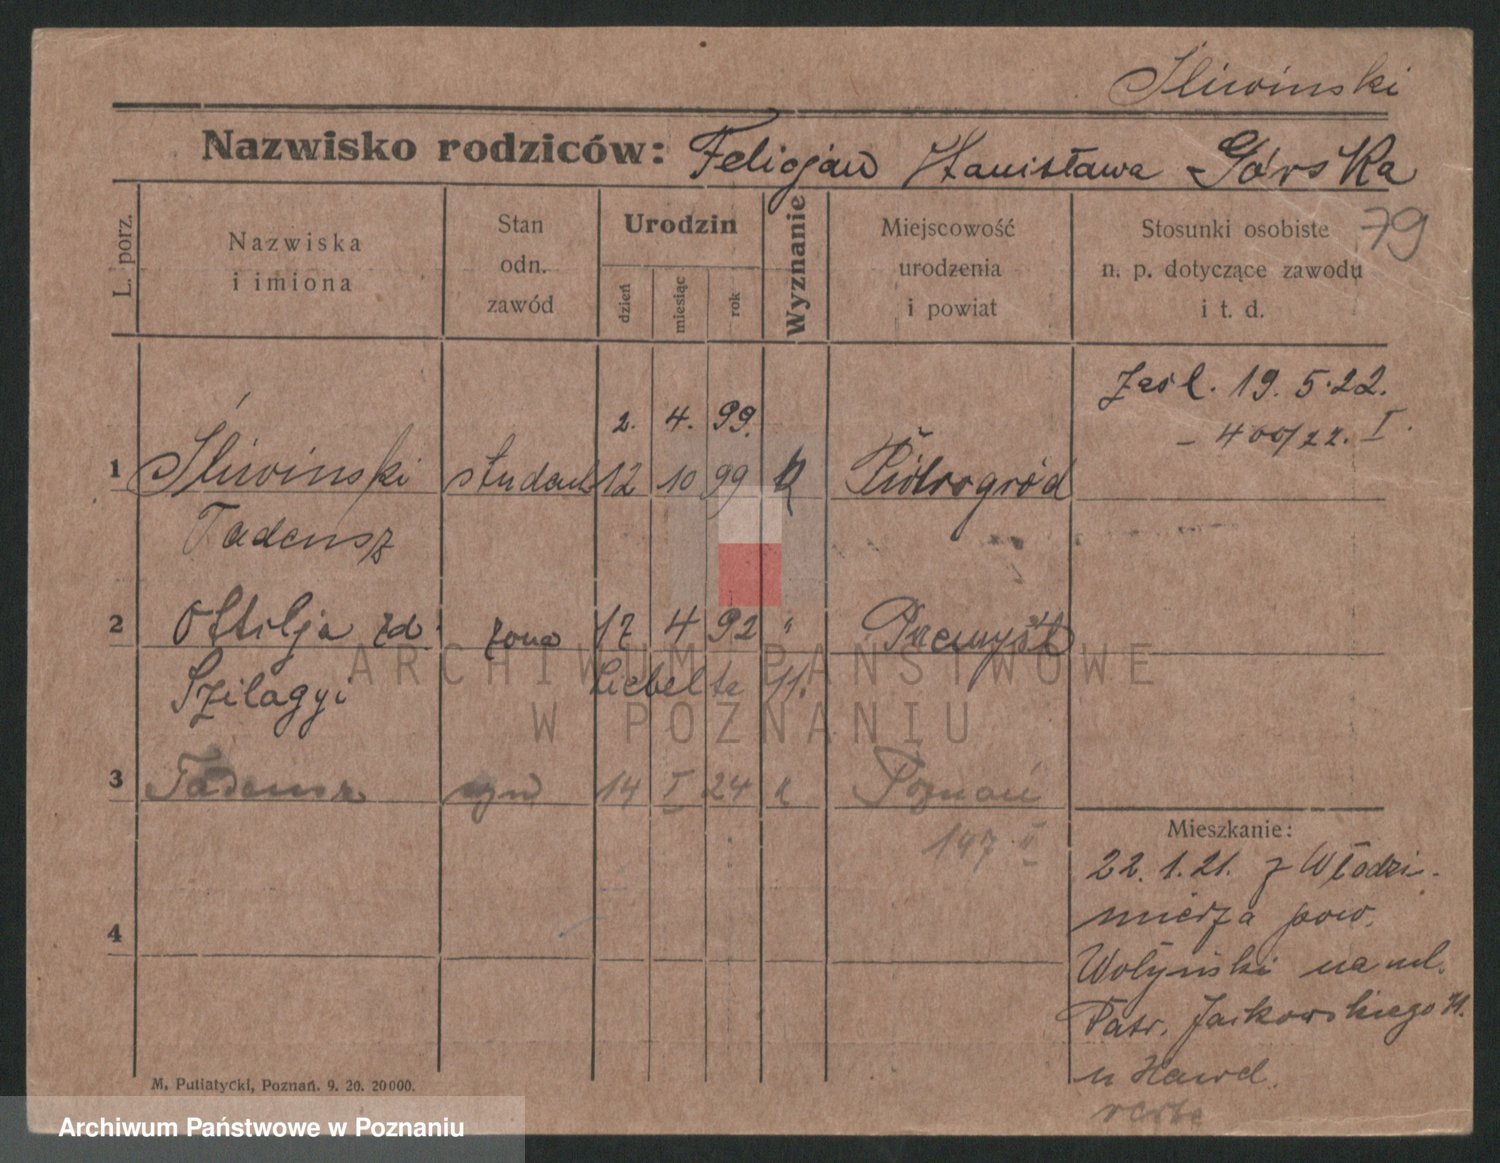 Śliwinski
Nazwisko rodziców: Felicjan Stanisława Górska
79
L. porz.
Nazwiska
i imiona
Stan
odn.
zawód
Urodzin
dzień
miesiąc
rok
Wyznanie
Miejscowość
urodzenia
i powiat
Stosunki osobiste
n. p. dotyczące zawodu
i t. d.
19.5.22.
- 400/22. I.
2. 4. 99.
1 Śliwinski student 12 10 99 k Piotrogród
Tadeusz
2 Ottilja zd. żona 17 4 92 " Przemyśl
Szilagyi
Liebelta 11.
3 Tadeusz syn 14 I 24 k Poznań
147 II
4
Mieszkanie:
22.1.21. z Włodzi-
mierza pow.
Wołyński na ul.
Patr. Jackowskiego
u
M. Putiatycki, Poznań. 9. 20. 20000.
ARCHIWUM PAŃSTWOWE
W POZNANIU
Archiwum Państwowe w Poznaniu